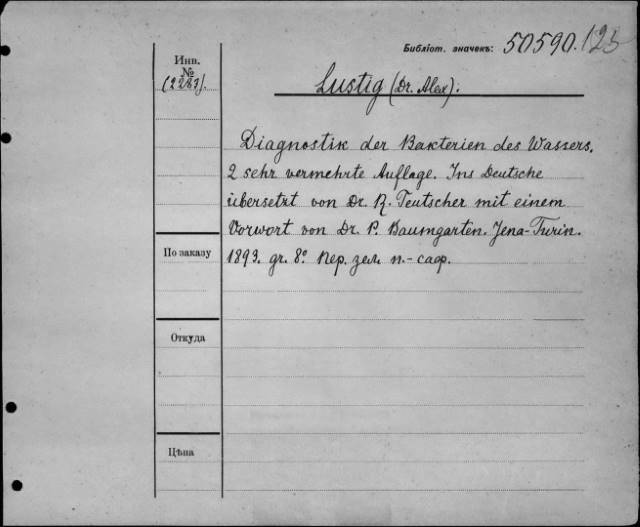 Библіот. значекъ: 50590.125
Инв.
№
(2283).
Lustig (Dr. Alex).
Diagnostik der Bakterien des Wassers.
2 sehr vermehrte Auflage. Ins Deutsche
übersetzt von Dr. R. Teutscher mit einem
Vorwort von Dr. P. Baumgarten. Jena-Turin.
По заказу
1893. gr. 8° Пер. зел. п.-саф.
Откуда
Цѣна